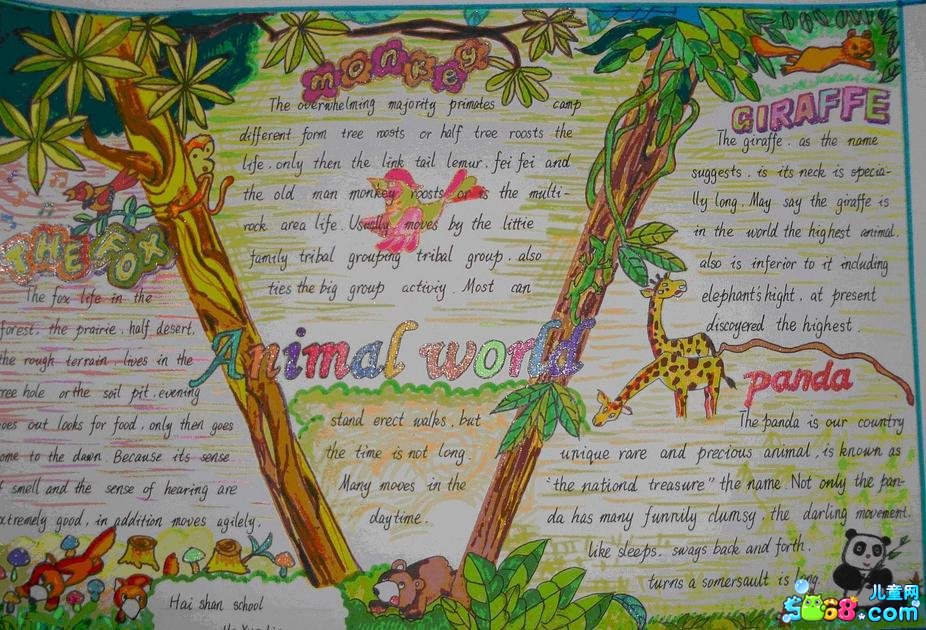 monkey
The overwhelming majority primates camp
different form tree roosts or half tree roosts the
life. only then the link tail lemur. fei fei and
the old man monkey roosts or is the multi-
rock area life. Usually moves by the little
family tribal grouping tribal group. also
ties the big group activiy. Most can
Animal world
stand erect walks, but
the time is not long.
Many moves in the
daytime.
THE FOX
The fox life in the
forest, the prairie, half desert,
the rough terrain, lives in the
ree hole or the soil pit. evening
oes out looks for food, only then goes
ome to the dawn. Because its sense
f smell and the sense of hearing are
xtremely good, in addition moves agilely.
Hai shan school
GIRAFFE
The giraffe. as the name
suggests. is its neck is specia-
lly long. May say the giraffe is
in the world the highest animal.
also is inferior to it including
elephant's hight, at present
discoyered the highest.
panda
The panda is our country
unique rare and precious animal, is known as
"the nationd treasure" the name. Not only the pan-
da has many funnily clumsy, the darling movement.
like sleeps. sways back and forth.
turns a somersault is long.
5068 儿童网
.com